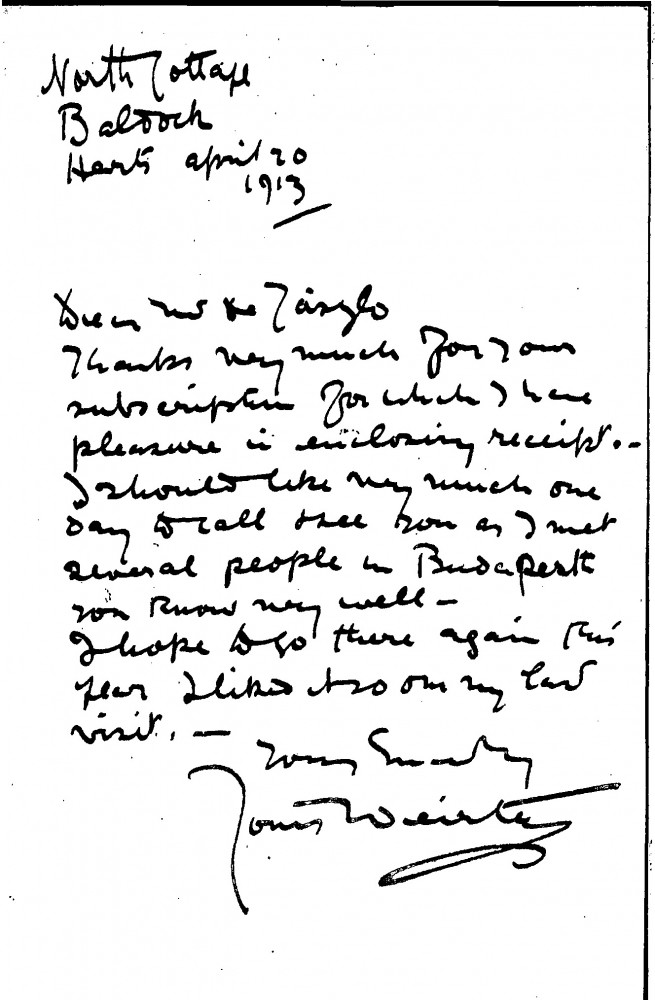 North Cottage
Baldock
Herts April 20
1913
Dear Mr de László
Thanks very much for your
subscription for which I have
pleasure in enclosing receipt. –
I should like very much one
day to call & see you as I met
several people in Budapesth
you know very well –
I hope to go there again this
year I liked it so on my last
visit. –
Yours Sincerely
Louis Weirter